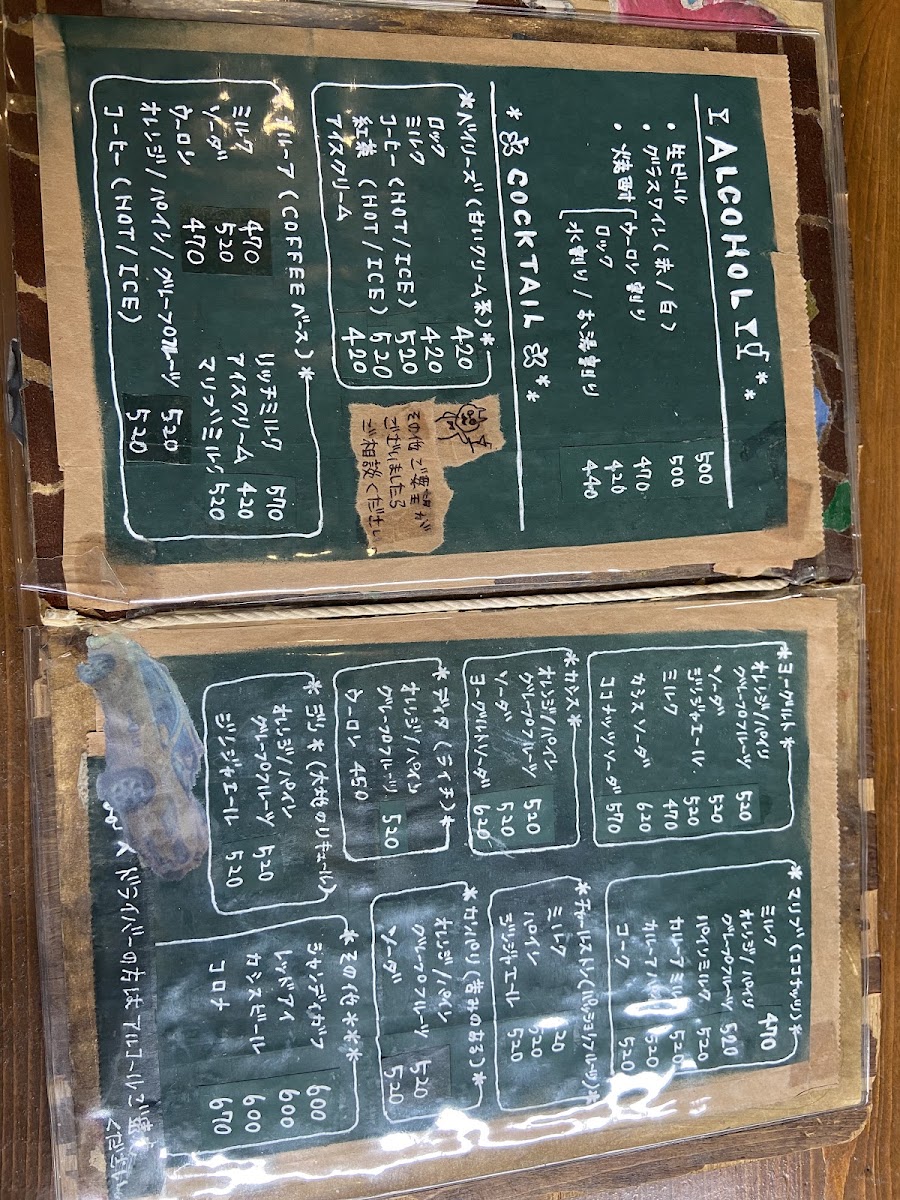 ALCOHOL
・生ビール 500
・グラスワイン(赤/白) 500
・焼酎 ウーロン割り 470
ロック 420
水割り/お湯割り 440
* COCKTAIL **
*ベイリーズ(甘いクリーム系)*
ロック 420
ミルク 420
コーヒー(HOT/ICE) 520
紅茶(HOT/ICE) 520
アイスクリーム 420
その他ご要望が
ございましたら
ご相談ください
*カルーア(COFFEEベース)*
ミルク 470
ソーダ 520
ウーロン 470
オレンジ/パイン/グレープフルーツ 520
コーヒー(HOT/ICE) 520
リッチミルク 570
アイスクリーム 420
マリブミルク 520
*ヨーグルト*
オレンジ/パイン
グレープフルーツ 520
ソーダ 520
ジンジャエール 520
ミルク 470
カシスソーダ 620
ココナッツソーダ 570
*カシス*
オレンジ/パイン
グレープフルーツ 520
ソーダ 520
ヨーグルトソーダ 620
*ディタ(ライチ)*
オレンジ/パイン
グレープフルーツ 520
ウーロン 450
*ジン*(大地のリキュール)
オレンジ/パイン
グレープフルーツ 520
ジンジャエール 520
*マリブ(ココナッツ)*
ミルク 470
オレンジ/パイン
グレープフルーツ 520
パインミルク 520
カルーアミルク 520
カルーア 520
コーク 520
*チャールストン(パッションフルーツ)*
ミルク 520
パイン 520
ジンジャエール 520
*カンパリ(苦みのある)*
オレンジ/パイン
グレープフルーツ 520
ソーダ 520
*その他***
シャンディガフ 600
レッドアイ 600
カシスビール 600
コロナ 670
ドライバーの方はアルコールご遠
ください